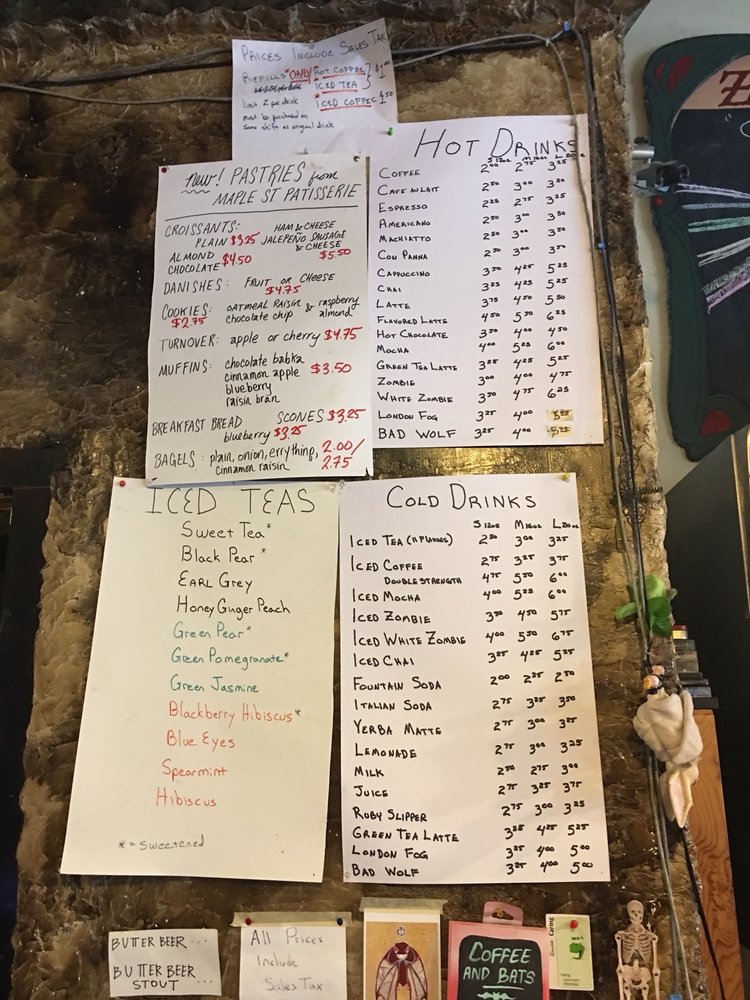 PRICES INCLUDE SALES TAX
REFILLS *ONLY* HOT COFFEE } $1.00
ICED TEA
*ICED COFFEE 1.50
limit 2 per drink
must be purchased on
same shift as original drink
New! PASTRIES from
MAPLE ST PATISSERIE
CROISSANTS: HAM & CHEESE
PLAIN $3.25 JALEPEÑO SAUSAGE
& CHEESE
ALMOND $4.50 $5.50
CHOCOLATE
DANISHES: FRUIT OR CHEESE
$4.75
COOKIES: OATMEAL RAISIN & raspberry
$2.75 chocolate chip almond
TURNOVER: apple or cherry $4.75
MUFFINS: chocolate babka
cinnamon apple $3.50
blueberry
raisin bran
BREAKFAST BREAD SCONES $3.25
blueberry $3.25
BAGELS: plain, onion, errything, 2.00/
cinnamon raisin 2.75
HOT DRINKS
S 12oz M 16oz L 20oz
COFFEE 2.00 2.75 3.25
CAFE AU LAIT 2.50 3.00 3.50
ESPRESSO 2.25 2.75 3.25
AMERICANO 2.50 3.00 3.50
MACHIATTO 2.50 3.00 3.50
CON PANNA 2.50 3.00 3.50
CAPPUCCINO 3.50 4.25 5.25
CHAI 3.25 4.25 5.25
LATTE 3.75 4.50 5.50
FLAVORED LATTE 4.50 5.50 6.25
HOT CHOCOLATE 3.50 4.00 4.50
MOCHA 4.00 5.25 6.00
GREEN TEA LATTE 3.25 4.25 5.25
ZOMBIE 3.00 4.00 4.75
WHITE ZOMBIE 3.50 4.75 6.25
LONDON FOG 3.25 4.00
BAD WOLF 3.25 4.00 5.25
ICED TEAS
Sweet Tea*
Black Pear*
EARL GREY
Honey Ginger Peach
Green Pear*
Green Pomegranate*
Green Jasmine
Blackberry Hibiscus*
Blue Eyes
Spearmint
Hibiscus
* = sweetened
COLD DRINKS
S 12oz M 16oz L 20oz
ICED TEA (11 FLAVORS) 2.50 3.00 3.25
ICED COFFEE 2.75 3.25 3.75
DOUBLE STRENGTH 4.75 5.50 6.00
ICED MOCHA 4.00 5.25 6.00
ICED ZOMBIE 3.50 4.50 5.75
ICED WHITE ZOMBIE 4.00 5.50 6.75
ICED CHAI 3.25 4.25 5.25
FOUNTAIN SODA 2.00 2.25 2.50
ITALIAN SODA 2.75 3.25 3.50
YERBA MATTE 2.75 3.00 3.25
LEMONADE 2.75 3.00 3.25
MILK 2.50 2.75 3.00
JUICE 2.75 3.25 3.75
RUBY SLIPPER 2.75 3.00 3.25
GREEN TEA LATTE 3.25 4.25 5.25
LONDON FOG 3.25 4.00 5.00
BAD WOLF 3.25 4.00 5.00
BUTTER BEER ...
BUTTER BEER
STOUT ...
All Prices
Include
Sales Tax
COFFEE
AND BATS
Caring